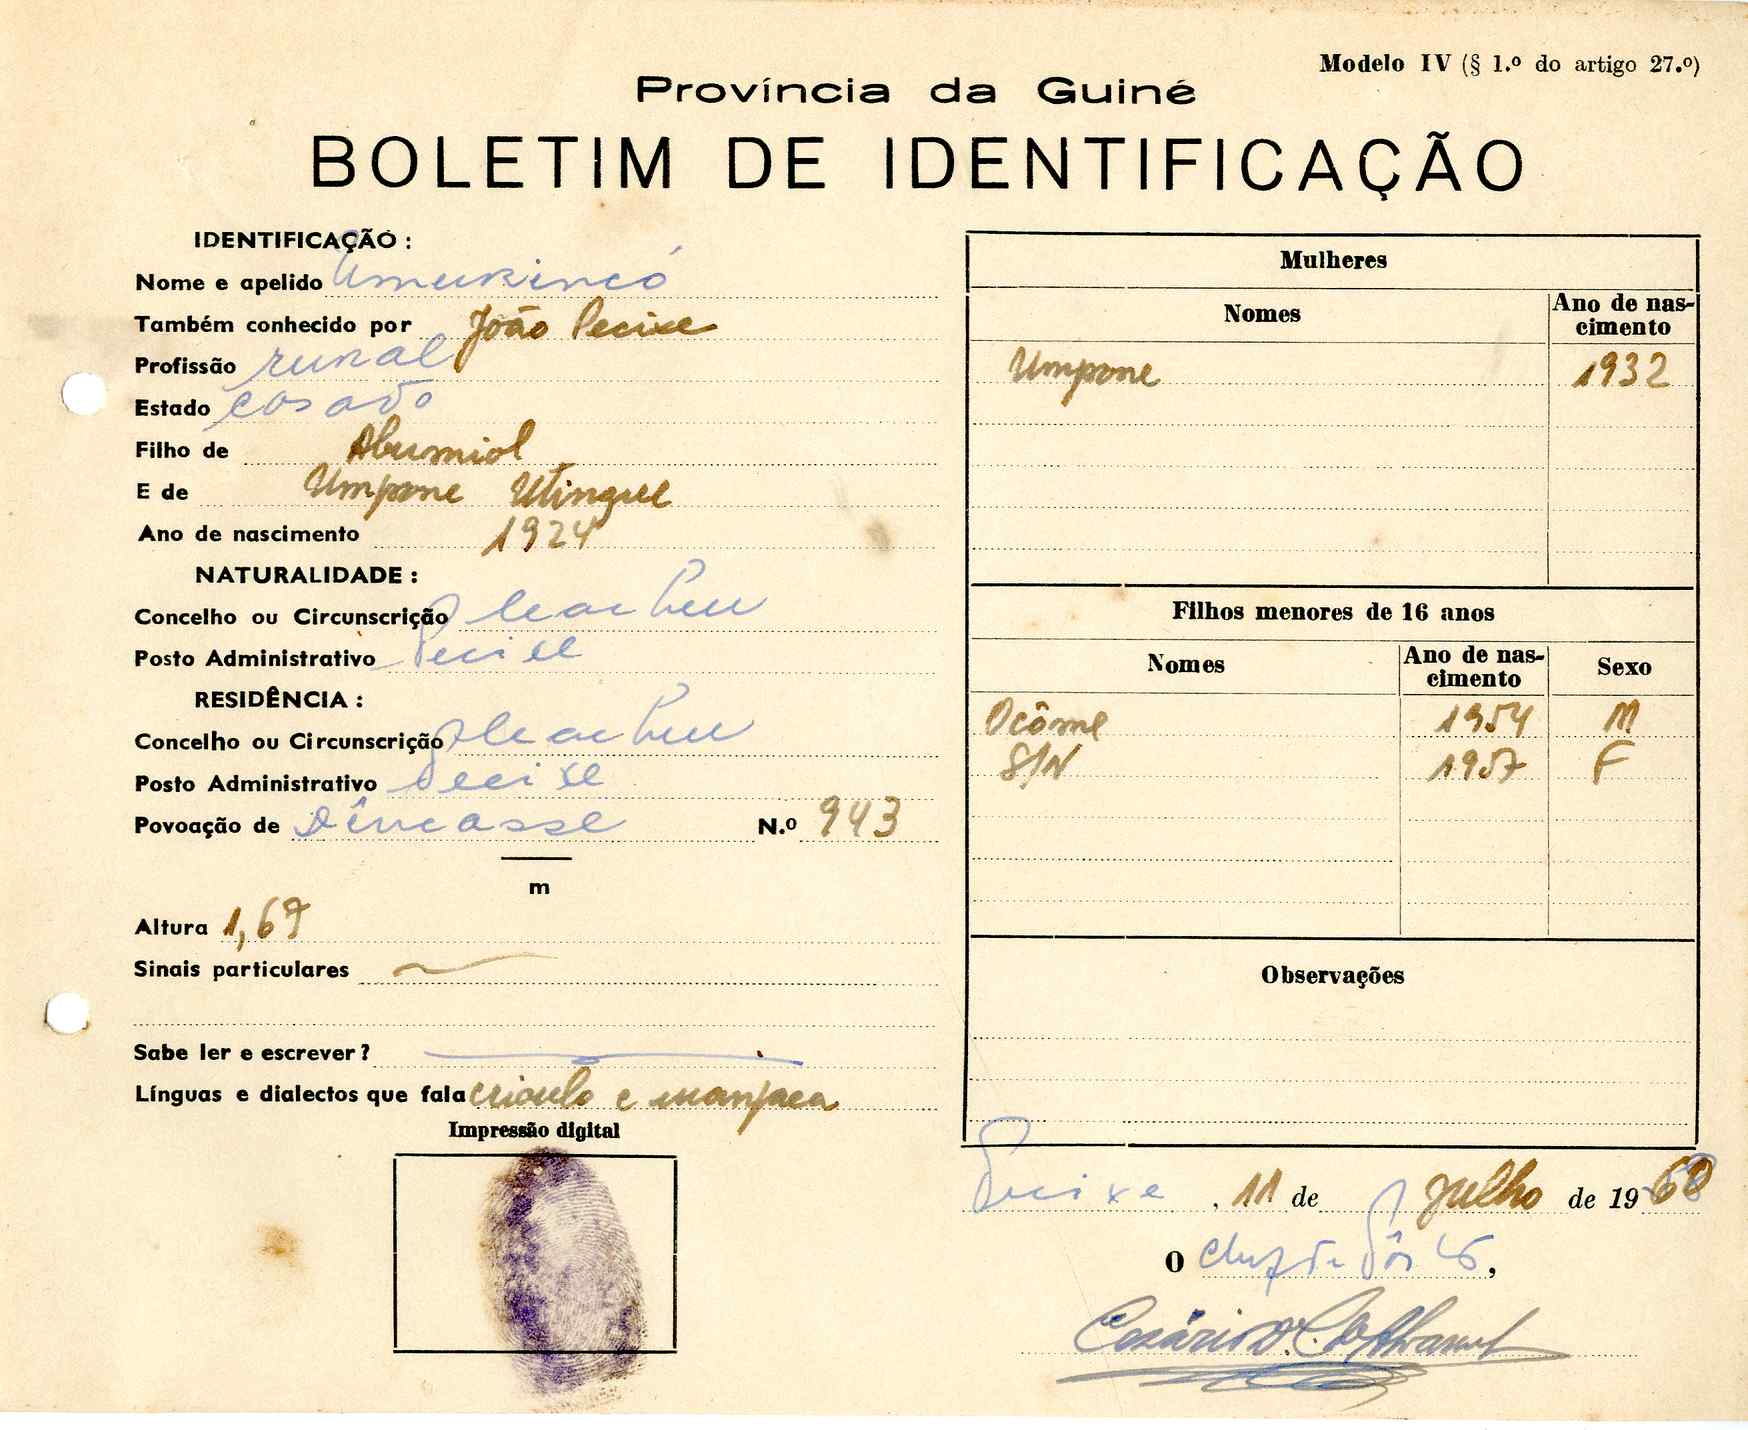 Modelo IV (§ 1.º do artigo 27.º)
Província da Guiné
BOLETIM DE IDENTIFICAÇÃO
IDENTIFICAÇÃO :
Nome e apelido Umurincó
Também conhecido por João Pecixe
Profissão rural
Estado casado
Filho de Abumiol
E de Umpone Utingue
Ano de nascimento 1924
NATURALIDADE :
Concelho ou Circunscrição Cacheu
Posto Administrativo Pecixe
RESIDÊNCIA :
Concelho ou Circunscrição Cacheu
Posto Administrativo Pecixe
Povoação de N.º 943
m
Altura 1,67
Sinais particulares
Sabe ler e escrever ?
Línguas e dialectos que fala crioulo e manjaca
Impressão digital
Mulheres
Nomes Ano de nas-
cimento
Umpone 1932
Filhos menores de 16 anos
Nomes Ano de nas-
cimento Sexo
Ocôme 1954 M
S/N 1957 F
Observações
Pecixe, 11 de Julho de 1960
O Chefe de Pôsto,